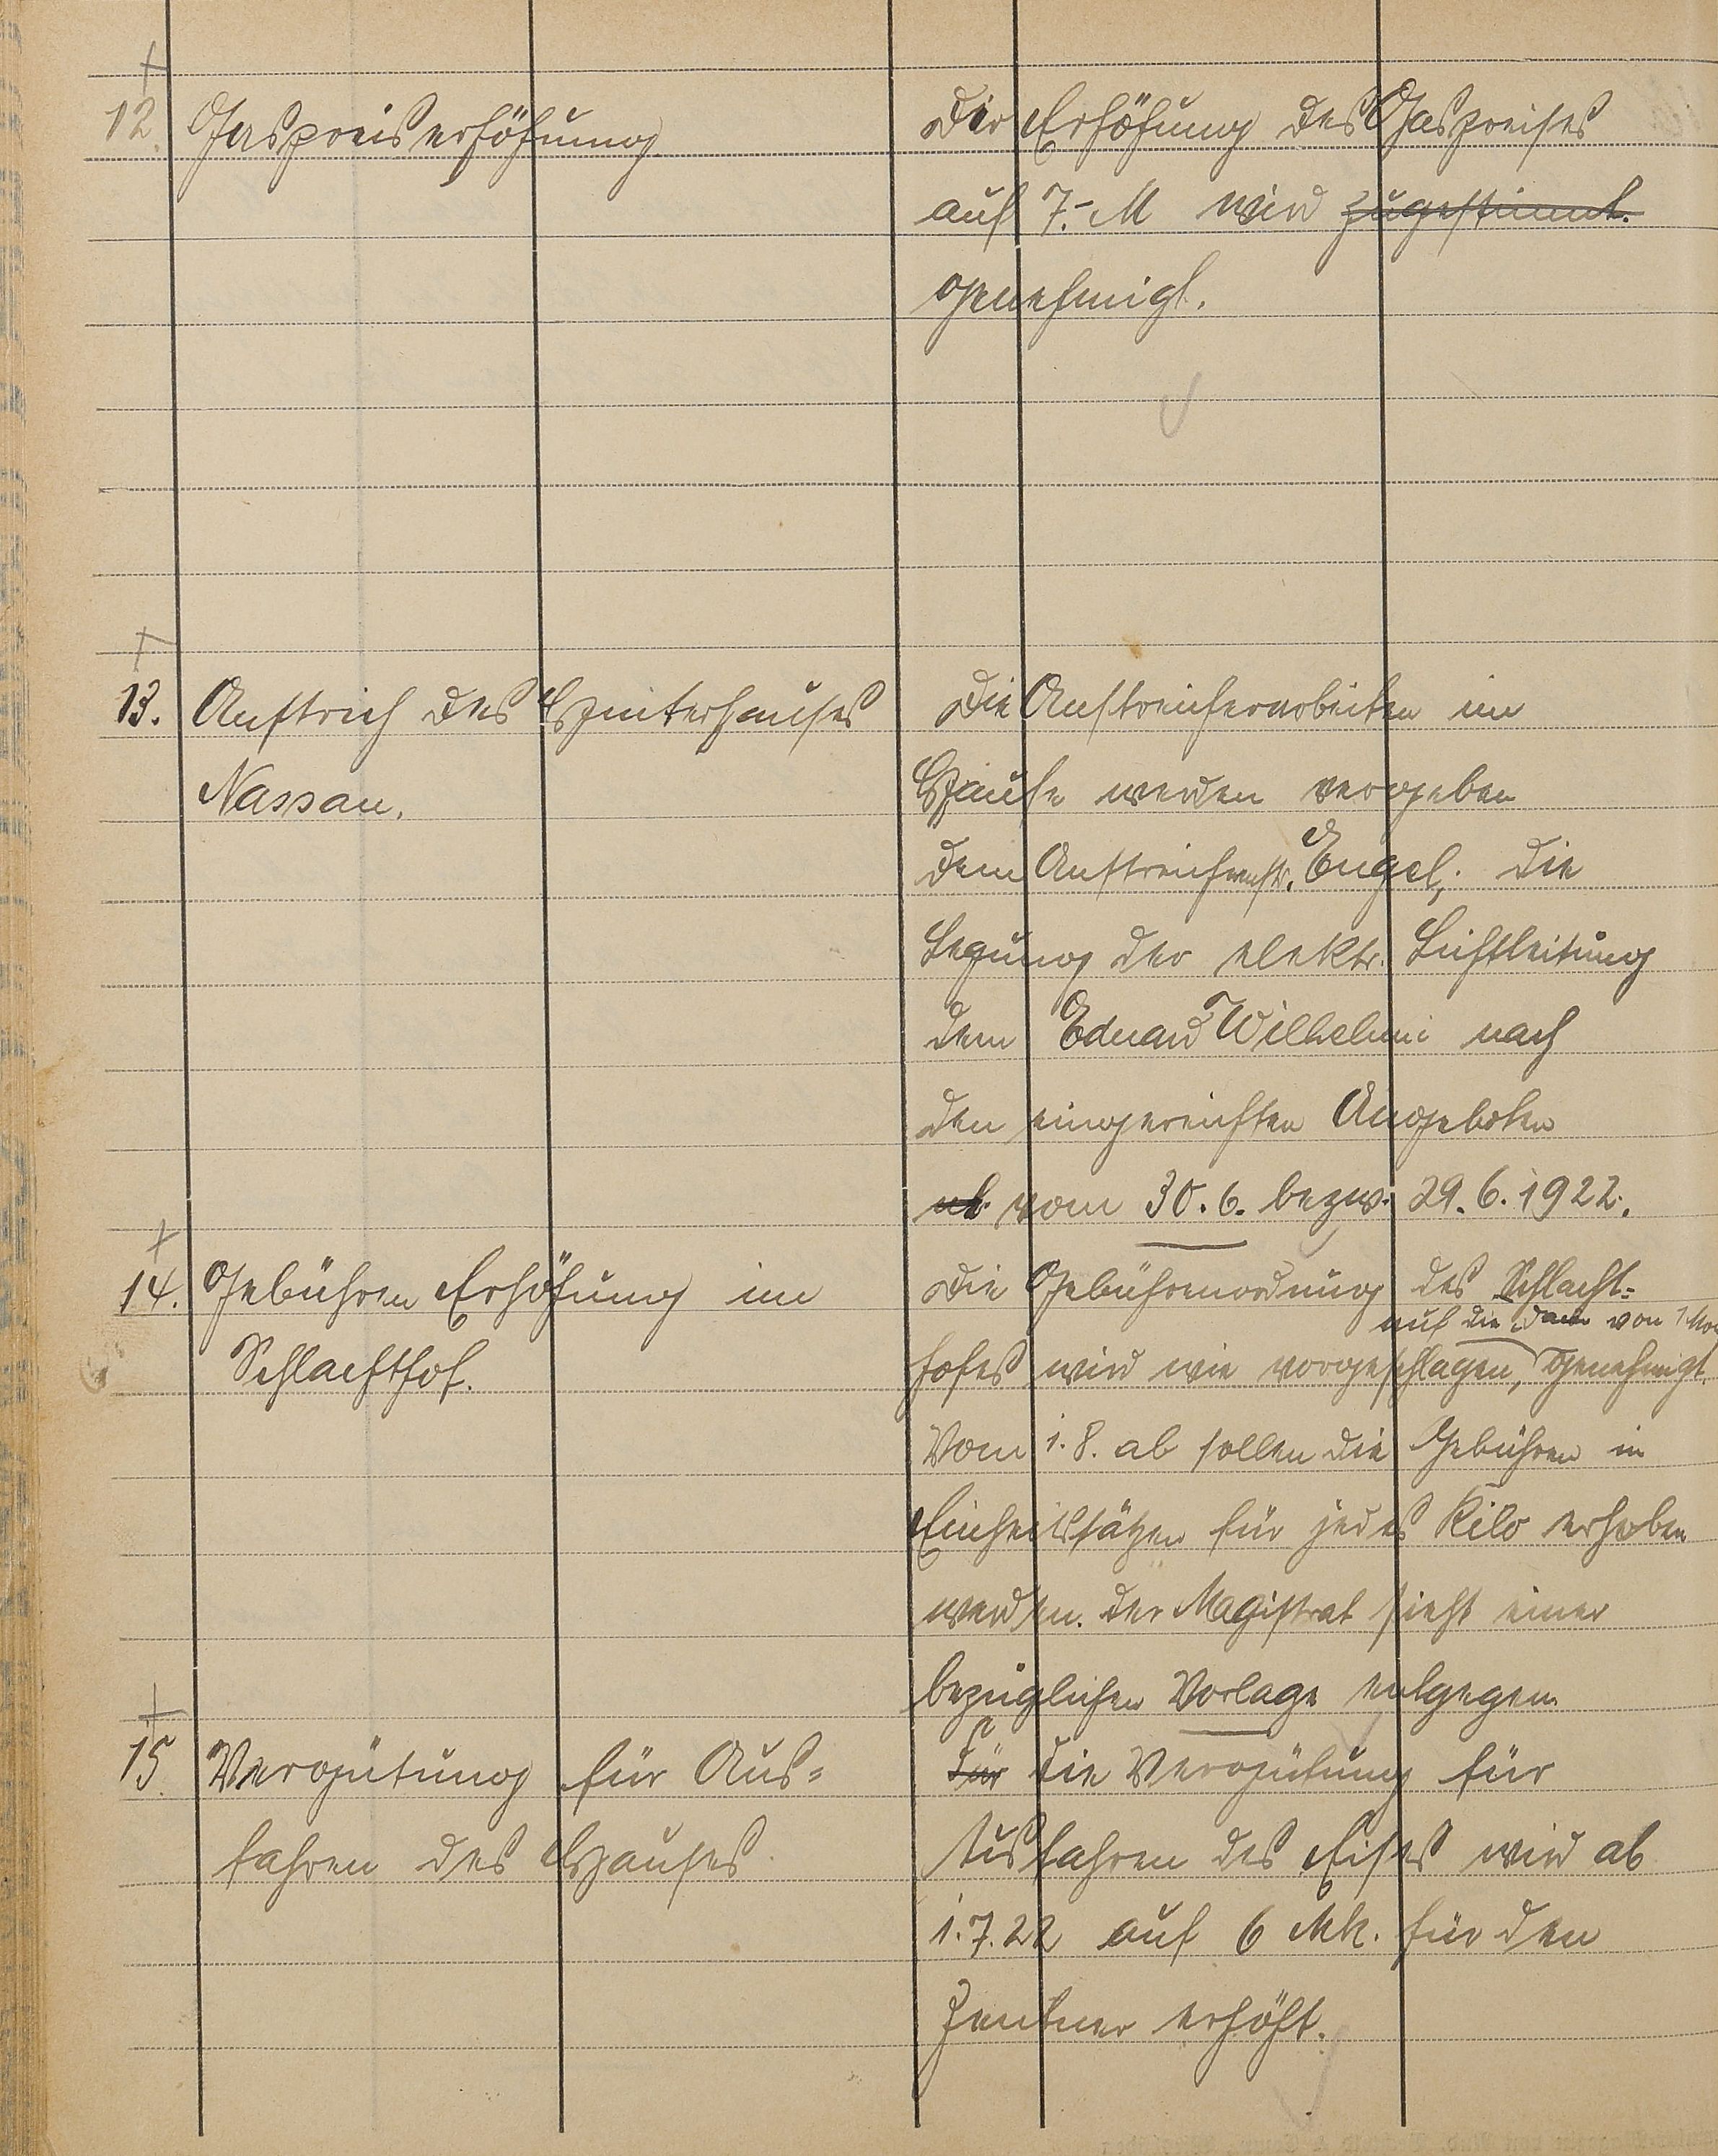 12. Gaspreiserhöhung
Der Erhöhung des Gaspreises
auf 7.- M wird zugestimmt.
genehmigt.
13. Anstrich des Hinterhauses
Nassau.
Die Anstreicherarbeiten im
Hause werden vergeben
dem Anstreichermstr. Engel, die
Legung der elektr. Lichtleitung
dem Eduard Wilhelmi nach
den eingereichten Angeboten
vom 30.6. bezw. 29.6.1922.
14. Gebühren Erhöhung im
Schlachthof.
Die Gebührenordnung des Schlacht-
auf die Dauer von 1 Mon
hofes wird wie vorgeschlagen, genehmigt.
Vom 1.8. ab sollen die Gebühren in
Einheitssätzen für jedes Kilo erhoben
werden. Der Magistrat sieht einer
bezüglichen Vorlage entgegen.
15. Vergütung für Aus-
fahren des Hauses.
Für die Vergütung für
Ausfahren des Eises wird ab
1.7.22 auf 6 Mk. für den
Zentner erhöht.